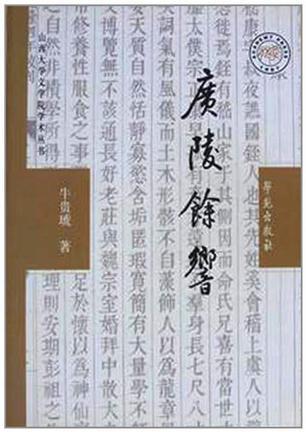 廣陵餘響
學苑出版社
山西大学文学院学术丛书
牛贵琥 著
叔夜譙國銍人也其先姓奚會稽上虞人以
徙焉銍有嵇山家于其側因而命氏兄喜有當世
太僕宗正
羣身長七尺八
美詞氣有風儀而土木形骸不自藻飾人以
天質自然恬靜寡慾含垢匿瑕寬簡有大量學不師
覽無不該通長好老莊與魏宗室婚拜中散大
常修養性服食之事
足於懷以為神仙
之自然非積學所得
理則安期彭祖之